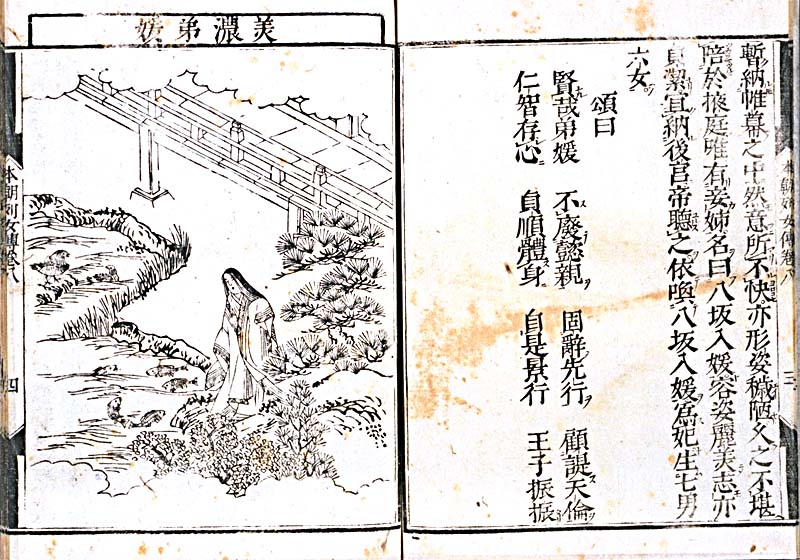 本朝列女傳卷八 三
暫納帷幕之中然意所不快亦形姿穢陋久之不堪
陪於掖庭唯有妾姉名曰八坂入媛容姿麗美志亦
貞潔宜納後宮帝聽之依喚八坂入媛爲妃生七男
六女
頌曰
賢哉弟媛 不廢懿親 固辭先行 顧諟天倫
仁智存心 貞順體身 自是景行 王子振振
美濃弟媛
本朝列女傳卷八 四